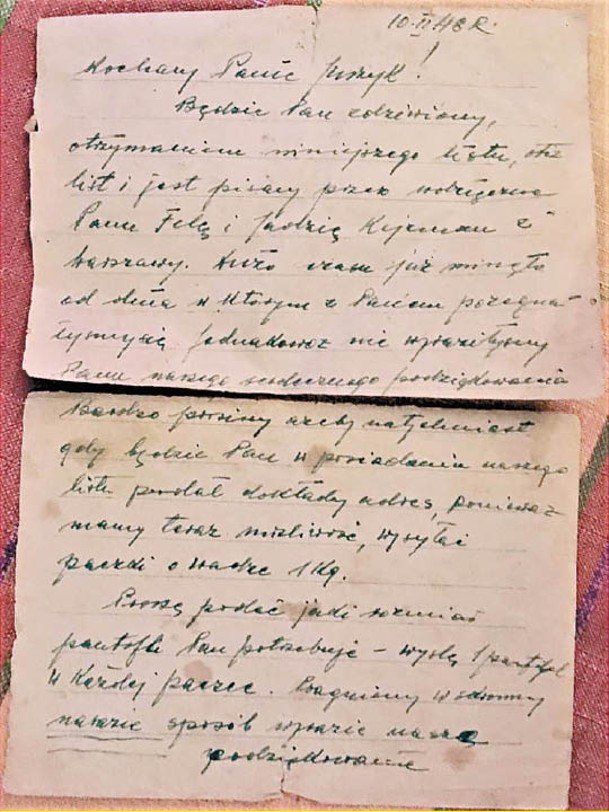 10. II 48 R.
Kochany Panie Jurzyk!
Będzie Pan zdziwiony,
otrzymaniem niniejszego listu, otóż
list i jest pisany przez wdzięczne
Panu Felę i Jadzię z
Warszawy. Dużo czasu już minęło
od dnia w którym z Panem pożegna-
łyśmy się jednakowoż nie wyraziłyśmy
Panu naszego serdecznego podziękowania
Bardzo prosimy ażeby natychmiast
gdy będzie Pan w posiadaniu naszego
listu podał dokładny adres, ponieważ
mamy teraz możliwość, wysyłać
paczki o wadze 1 Kg.
Proszę podać jaki rozmiar
pantofli Pan potrzebuje - wyślę 1 pantofel
w Każdej paczce. Pragniemy w skromny
narazie sposób wyrazić naszą
podziękowanie